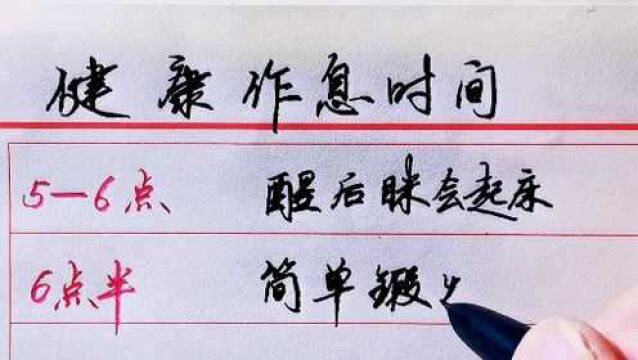 健康作息时间
5—6点 醒后眯会起床
6点半 简单锻